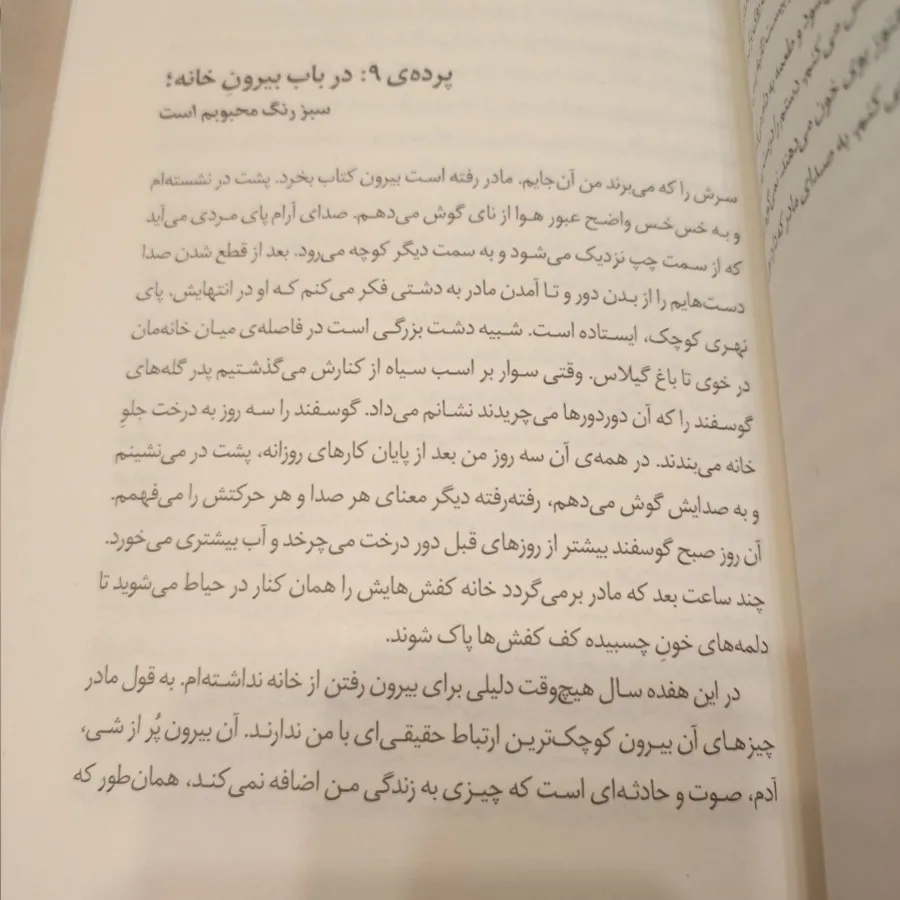 پرده‌ی ۹: در باب بیرونِ خانه؛
سبز رنگ محبوبم است
سرش را که می‌برند من آن‌جایم. مادر رفته است بیرون کتاب بخرد. پشت در نشسته‌ام
و به خس‌خس واضح عبور هوا از نای گوش می‌دهم. صدای آرام پای مردی می‌آید
که از سمت چپ نزدیک می‌شود و به سمت دیگر کوچه می‌رود. بعد از قطع شدن صدا
دست‌هایم را از بدن دور و تا آمدن مادر به دشتی فکر می‌کنم که او در انتهایش، پای
نهری کوچک، ایستاده است. شبیه دشت بزرگی است در فاصله‌ی میان خانه‌مان
در خوی تا باغ گیلاس. وقتی سوار بر اسب سیاه از کنارش می‌گذشتیم پدر گله‌های
گوسفند را که آن دوردورها می‌چریدند نشانم می‌داد. گوسفند را سه روز به درخت جلوِ
خانه می‌بندند. در همه‌ی آن سه روز من بعد از پایان کارهای روزانه، پشت در می‌نشینم
و به صدایش گوش می‌دهم، رفته‌رفته دیگر معنای هر صدا و هر حرکتش را می‌فهمم.
آن روز صبح گوسفند بیشتر از روزهای قبل دور درخت می‌چرخد و آب بیشتری می‌خورد.
چند ساعت بعد که مادر برمی‌گردد خانه کفش‌هایش را همان کنار در حیاط می‌شوید تا
دلمه‌های خونِ چسبیده کف کفش‌ها پاک شوند.
در این هفده سال هیچ‌وقت دلیلی برای بیرون رفتن از خانه نداشته‌ام. به قول مادر
چیزهای آن بیرون کوچک‌ترین ارتباط حقیقی‌ای با من ندارند. آن بیرون پُر از شی،
آدم، صوت و حادثه‌ای است که چیزی به زندگی من اضافه نمی‌کند، همان‌طور که